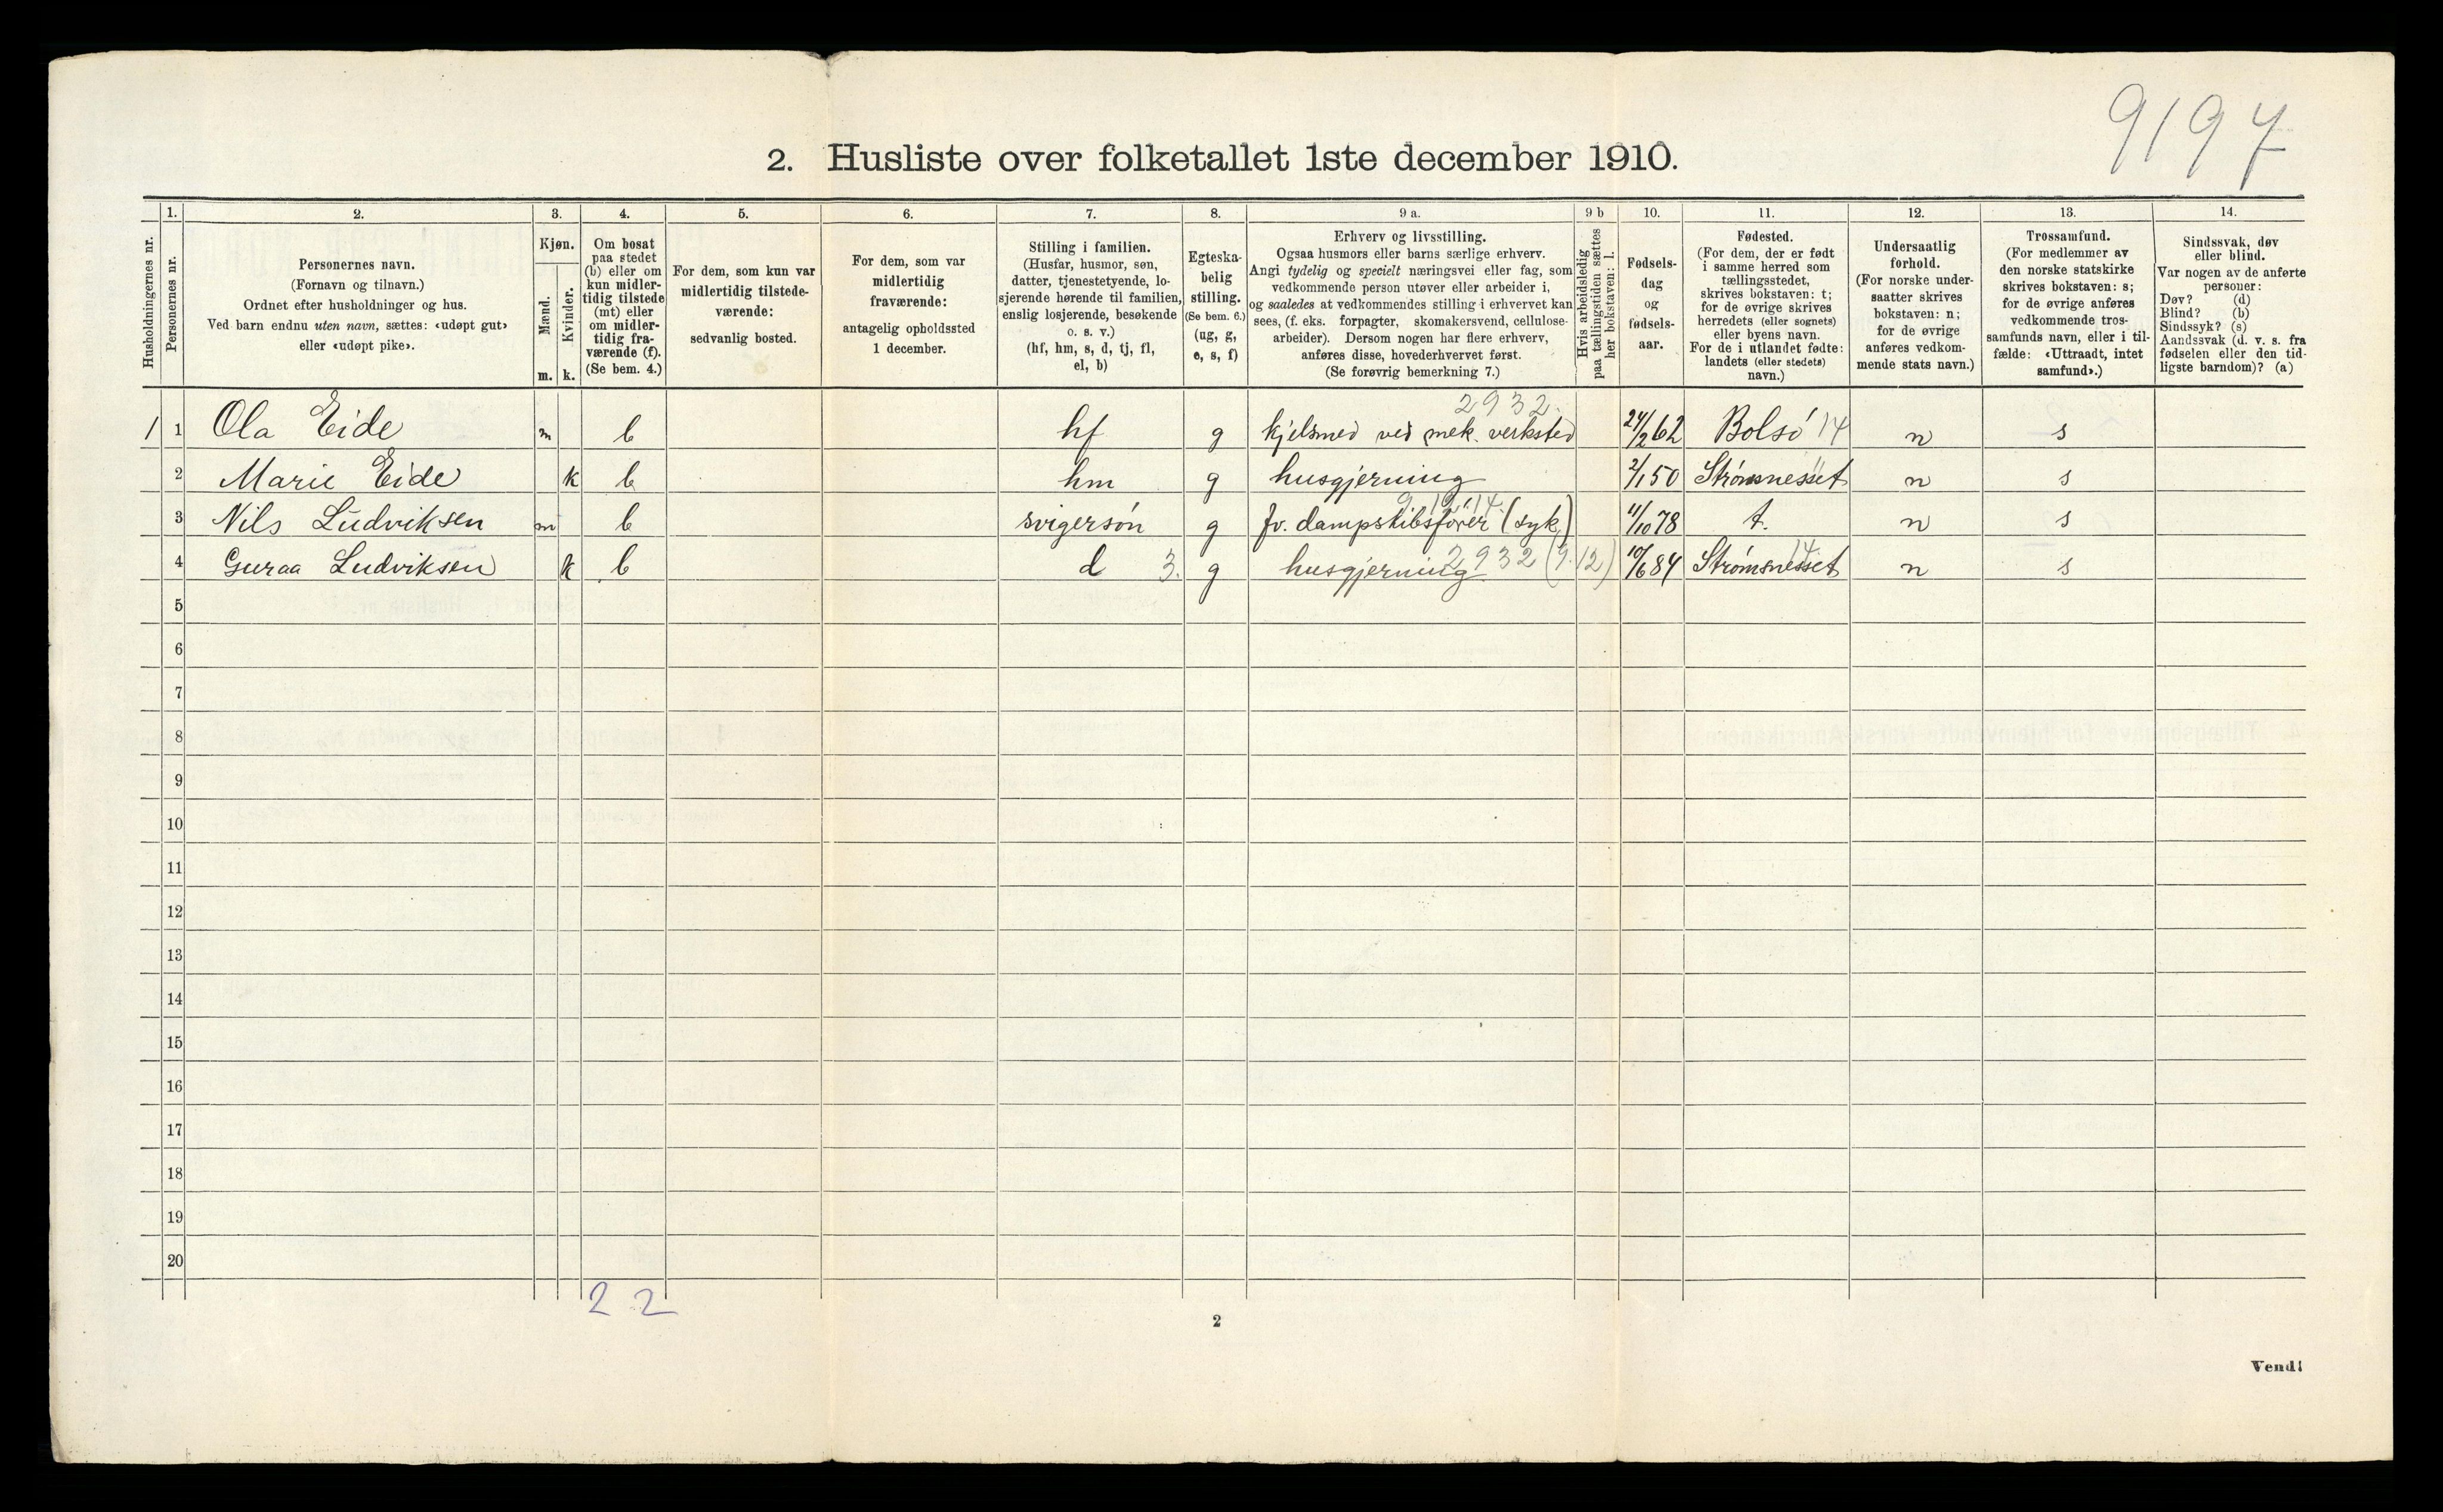 9197
2. Husliste over folketallet 1ste december 1910.
Husholdningernes nr.
1.
Personernes nr.
2.
Personernes navn.
(Fornavn og tilnavn.)
Ordnet efter husholdninger og hus.
Ved barn endnu uten navn, sættes: «udøpt gut»
eller «udøpt pike».
3.
Kjøn.
Mænd.
Kvinder.
m. k.
4.
Om bosat
paa stedet
(b) eller om
kun midler-
tidig tilstede
(mt) eller
om midler-
tidig fra-
værende (f).
(Se bem. 4.)
5.
For dem, som kun var
midlertidig tilstede-
værende:
sedvanlig bosted.
6.
For dem, som var
midlertidig
fraværende:
antagelig opholdssted
1 december.
7.
Stilling i familien.
(Husfar, husmor, søn,
datter, tjenestetyende, lo-
sjerende hørende til familien,
enslig losjerende, besøkende
o. s. v.)
(hf, hm, s, d, tj, fl,
el, b)
8.
Egteska-
belig
stilling.
(Se bem. 6.)
(ug, g,
e, s, f)
9 a.
Erhverv og livsstilling.
Ogsaa husmors eller barns særlige erhverv.
Angi tydelig og specielt næringsvei eller fag, som
vedkommende person utøver eller arbeider i,
og saaledes at vedkommendes stilling i erhvervet kan
sees, (f. eks. forpagter, skomakersvend, cellulose-
arbeider). Dersom nogen har flere erhverv,
anføres disse, hovederhvervet først.
(Se forøvrig bemerkning 7.)
9 b
Hvis arbeidsledig
paa tællingstiden sættes
her bokstaven: l.
10.
Fødsels-
dag
og
fødsels-
aar.
11.
Fødested.
(For dem, der er født
i samme herred som
tællingsstedet,
skrives bokstaven: t;
for de øvrige skrives
herredets (eller sognets)
eller byens navn.
For de i utlandet fødte:
landets (eller stedets)
navn.)
12.
Undersaatlig
forhold.
(For norske under-
saatter skrives
bokstaven: n;
for de øvrige
anføres vedkom-
mende stats navn.)
13.
Trossamfund.
(For medlemmer av
den norske statskirke
skrives bokstaven: s;
for de øvrige anføres
vedkommende tros-
samfunds navn, eller i til-
fælde: «Uttraadt, intet
samfund».)
14.
Sindssvak, døv
eller blind.
Var nogen av de anførte
personer:
Døv? (d)
Blind? (b)
Sindssyk? (s)
Aandssvak (d. v. s. fra
fødselen eller den tid-
ligste barndom)? (a)
2932.
1 1 Ola Eide m b hf g kjelsmed ved mek. verksted 24/2 62 Bolsó 14 n s
2 Marie Eide k b hm g husgjerning 2/1 50 Strømsnesset n s
3 Nils Ludviksen m b svigersón g fv. dampskibsfører (syk) 11/10 78 t. n s
4 Guraa Ludviksen k b d 3. g husgjerning 2932 (9.12) 10/6 84 Strømsnesset 14 n s
5
6
7
8
9
10
11
12
13
14
15
16
17
18
19
20
2 2
2
Vend!